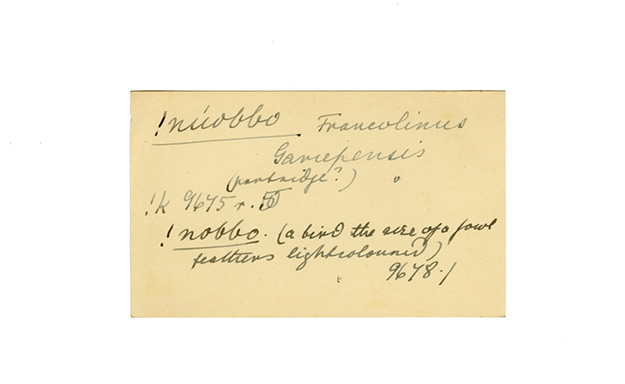 !núobbo Francolinus
Gariepensis
(partridge?)
!k 9675 r.
!nobbo. (a bird the size of a fowl
feathers lightcoloured)
9678./